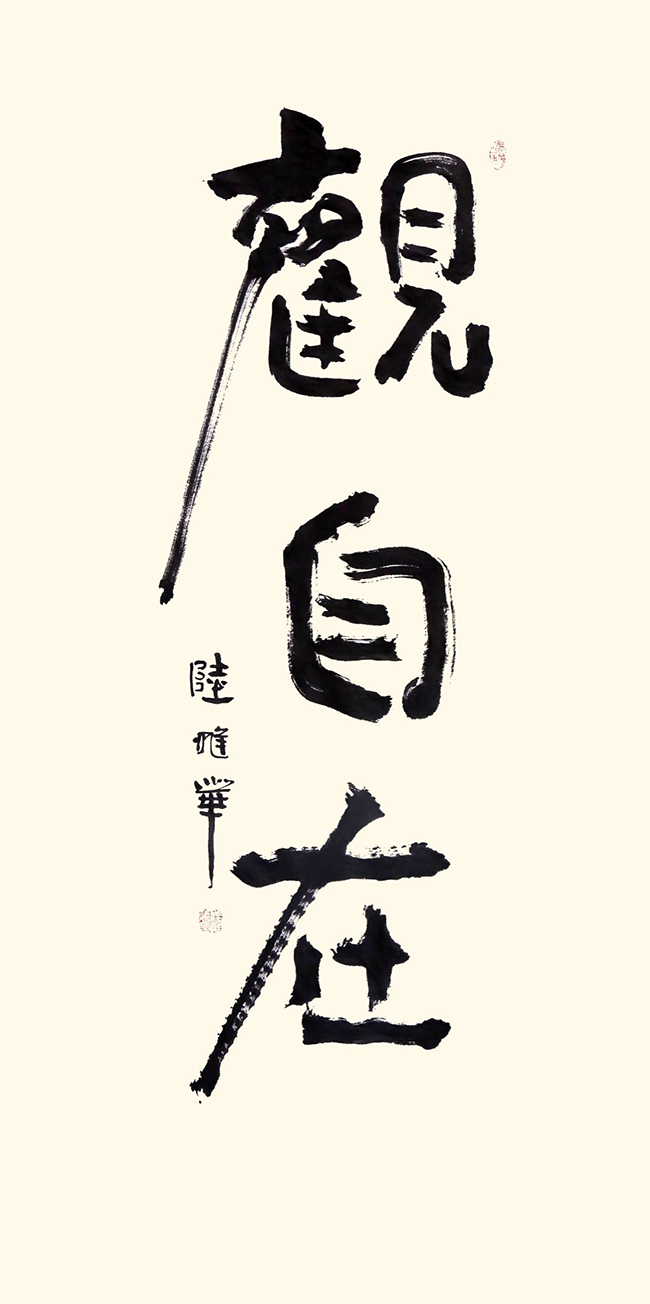 觀自在
陸唯華